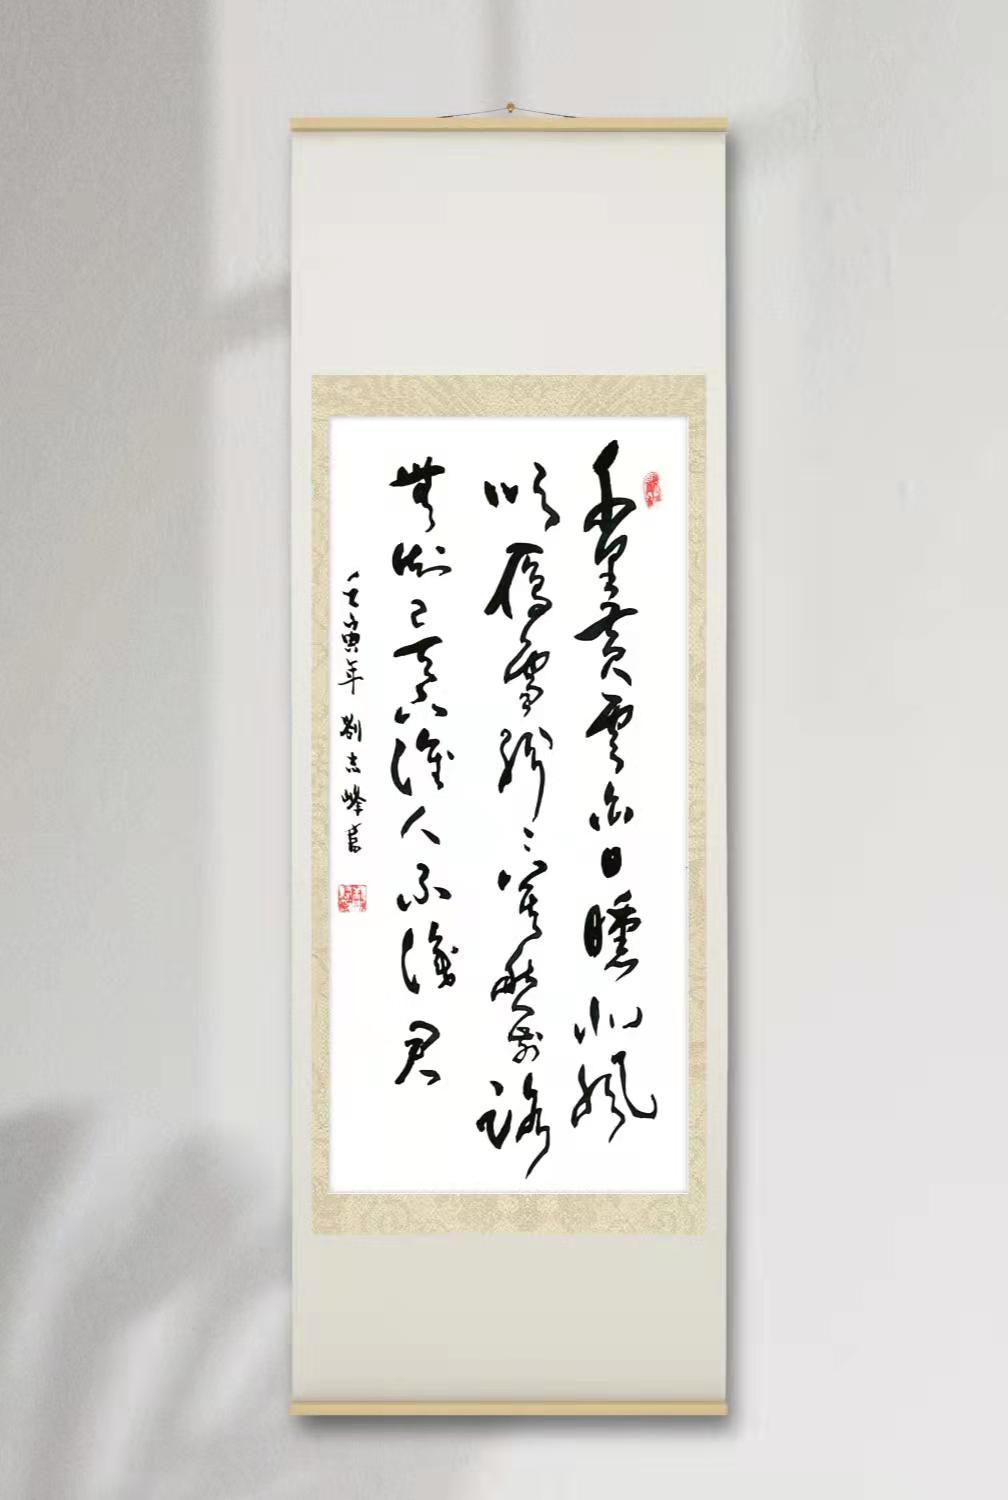 千里黄雲白日曛北風
吹雁雪紛〻莫愁前路
無知己天下誰人不識君
壬寅年 劉志峰書